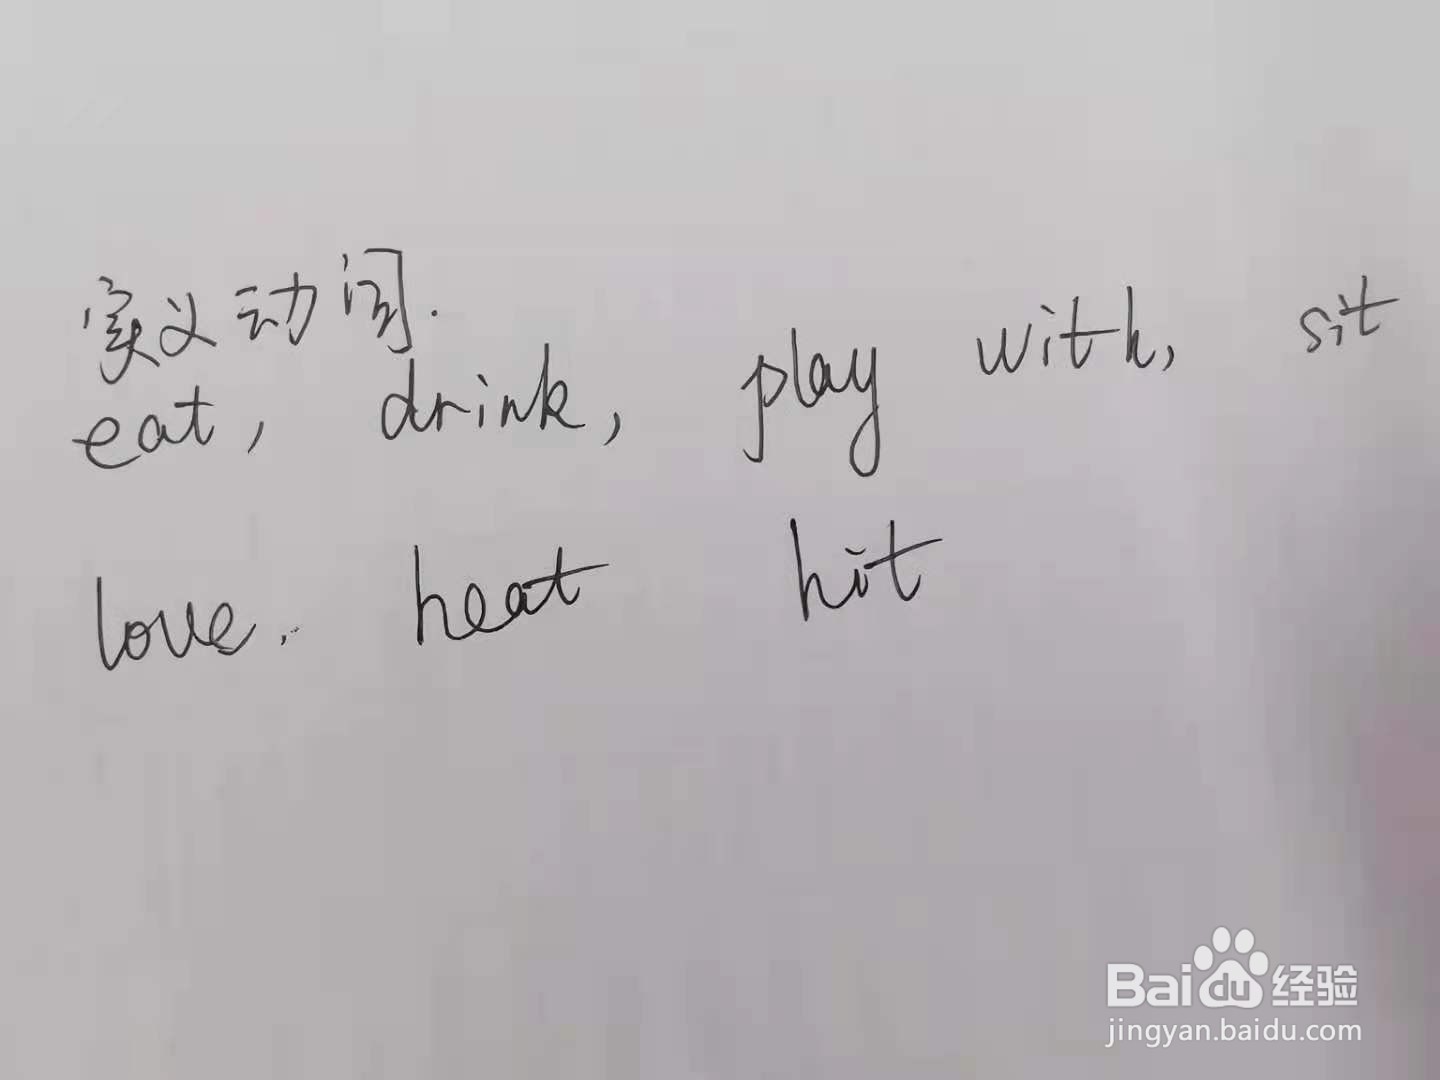 实义动词.
eat, drink, play with, sit
love. heat hit
Baidu经验
jingyan.baidu.com